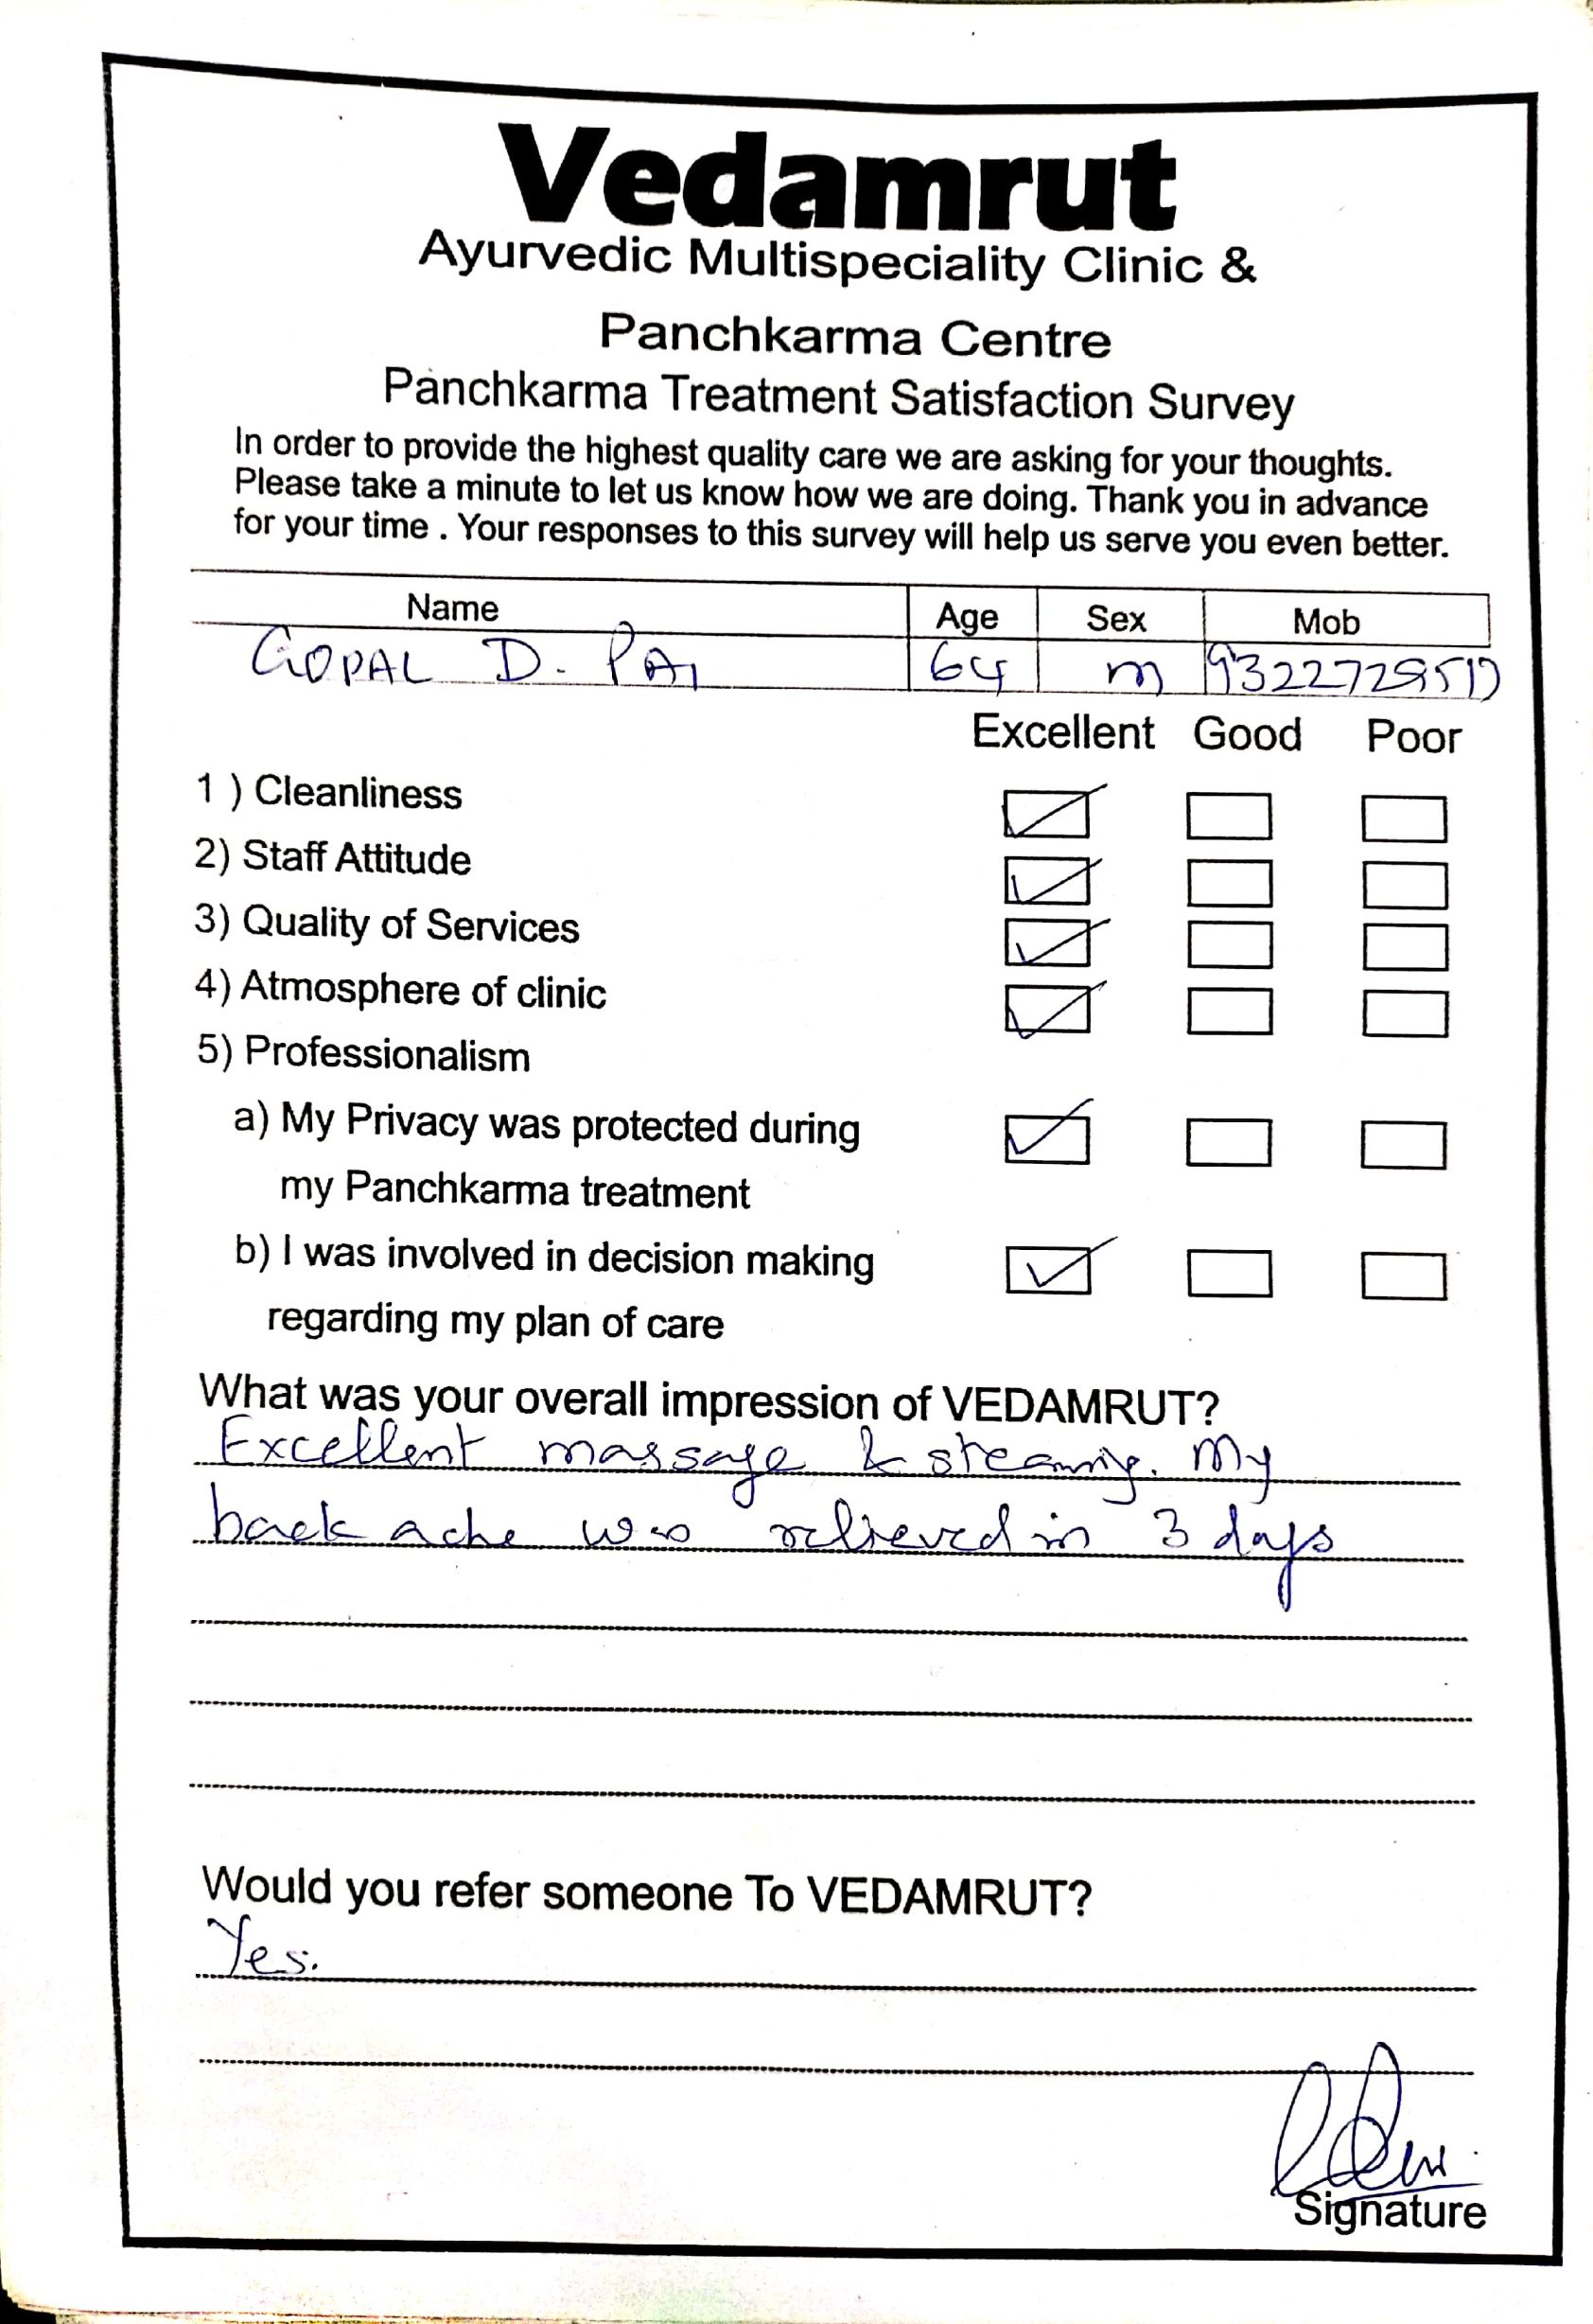 Vedamrut
Ayurvedic Multispeciality Clinic &
Panchkarma Centre
Panchkarma Treatment Satisfaction Survey
In order to provide the highest quality care we are asking for your thoughts.
Please take a minute to let us know how we are doing. Thank you in advance
for your time . Your responses to this survey will help us serve you even better.
Name Age Sex Mob
GOPAL D. PAI 64 M
Excellent Good Poor
1 ) Cleanliness
2) Staff Attitude
3) Quality of Services
4) Atmosphere of clinic
5) Professionalism
a) My Privacy was protected during
my Panchkarma treatment
b) I was involved in decision making
regarding my plan of care
What was your overall impression of VEDAMRUT?
Excellent massage & steaming. My
back ache was relieved in 3 days
Would you refer someone To VEDAMRUT?
Yes.
Signature